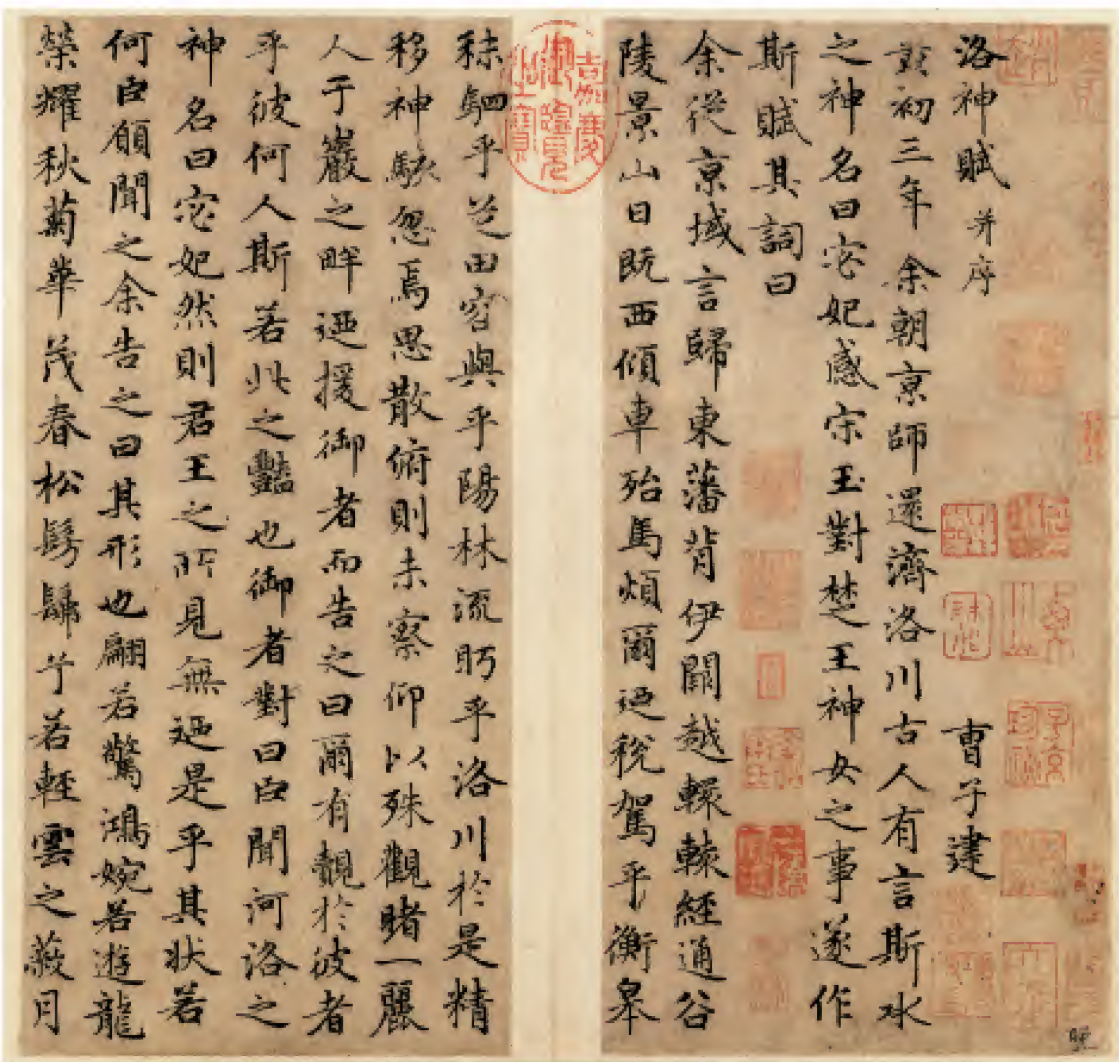 洛神賦 并序 曹子建
黃初三年余朝京師還濟洛川古人有言斯水
之神名曰宓妃感宋玉對楚王神女之事遂作
斯賦其詞曰
余從京域言歸東藩背伊闕越轘轅經通谷
陵景山日既西傾車殆馬煩爾迺稅駕乎蘅皋
秣駟乎芝田容與乎陽林流眄乎洛川於是精
移神駭忽焉思散俯則未察仰以殊觀睹一麗
人于巖之畔迺援御者而告之曰爾有覿於彼者
乎彼何人斯若此之豔也御者對曰臣聞河洛之
神名曰宓妃然則君王之所見無迺是乎其狀若
何臣願聞之余告之曰其形也翩若驚鴻婉若遊龍
榮耀秋菊華茂春松髣髴兮若輕雲之蔽月
嘉慶御覽之寶